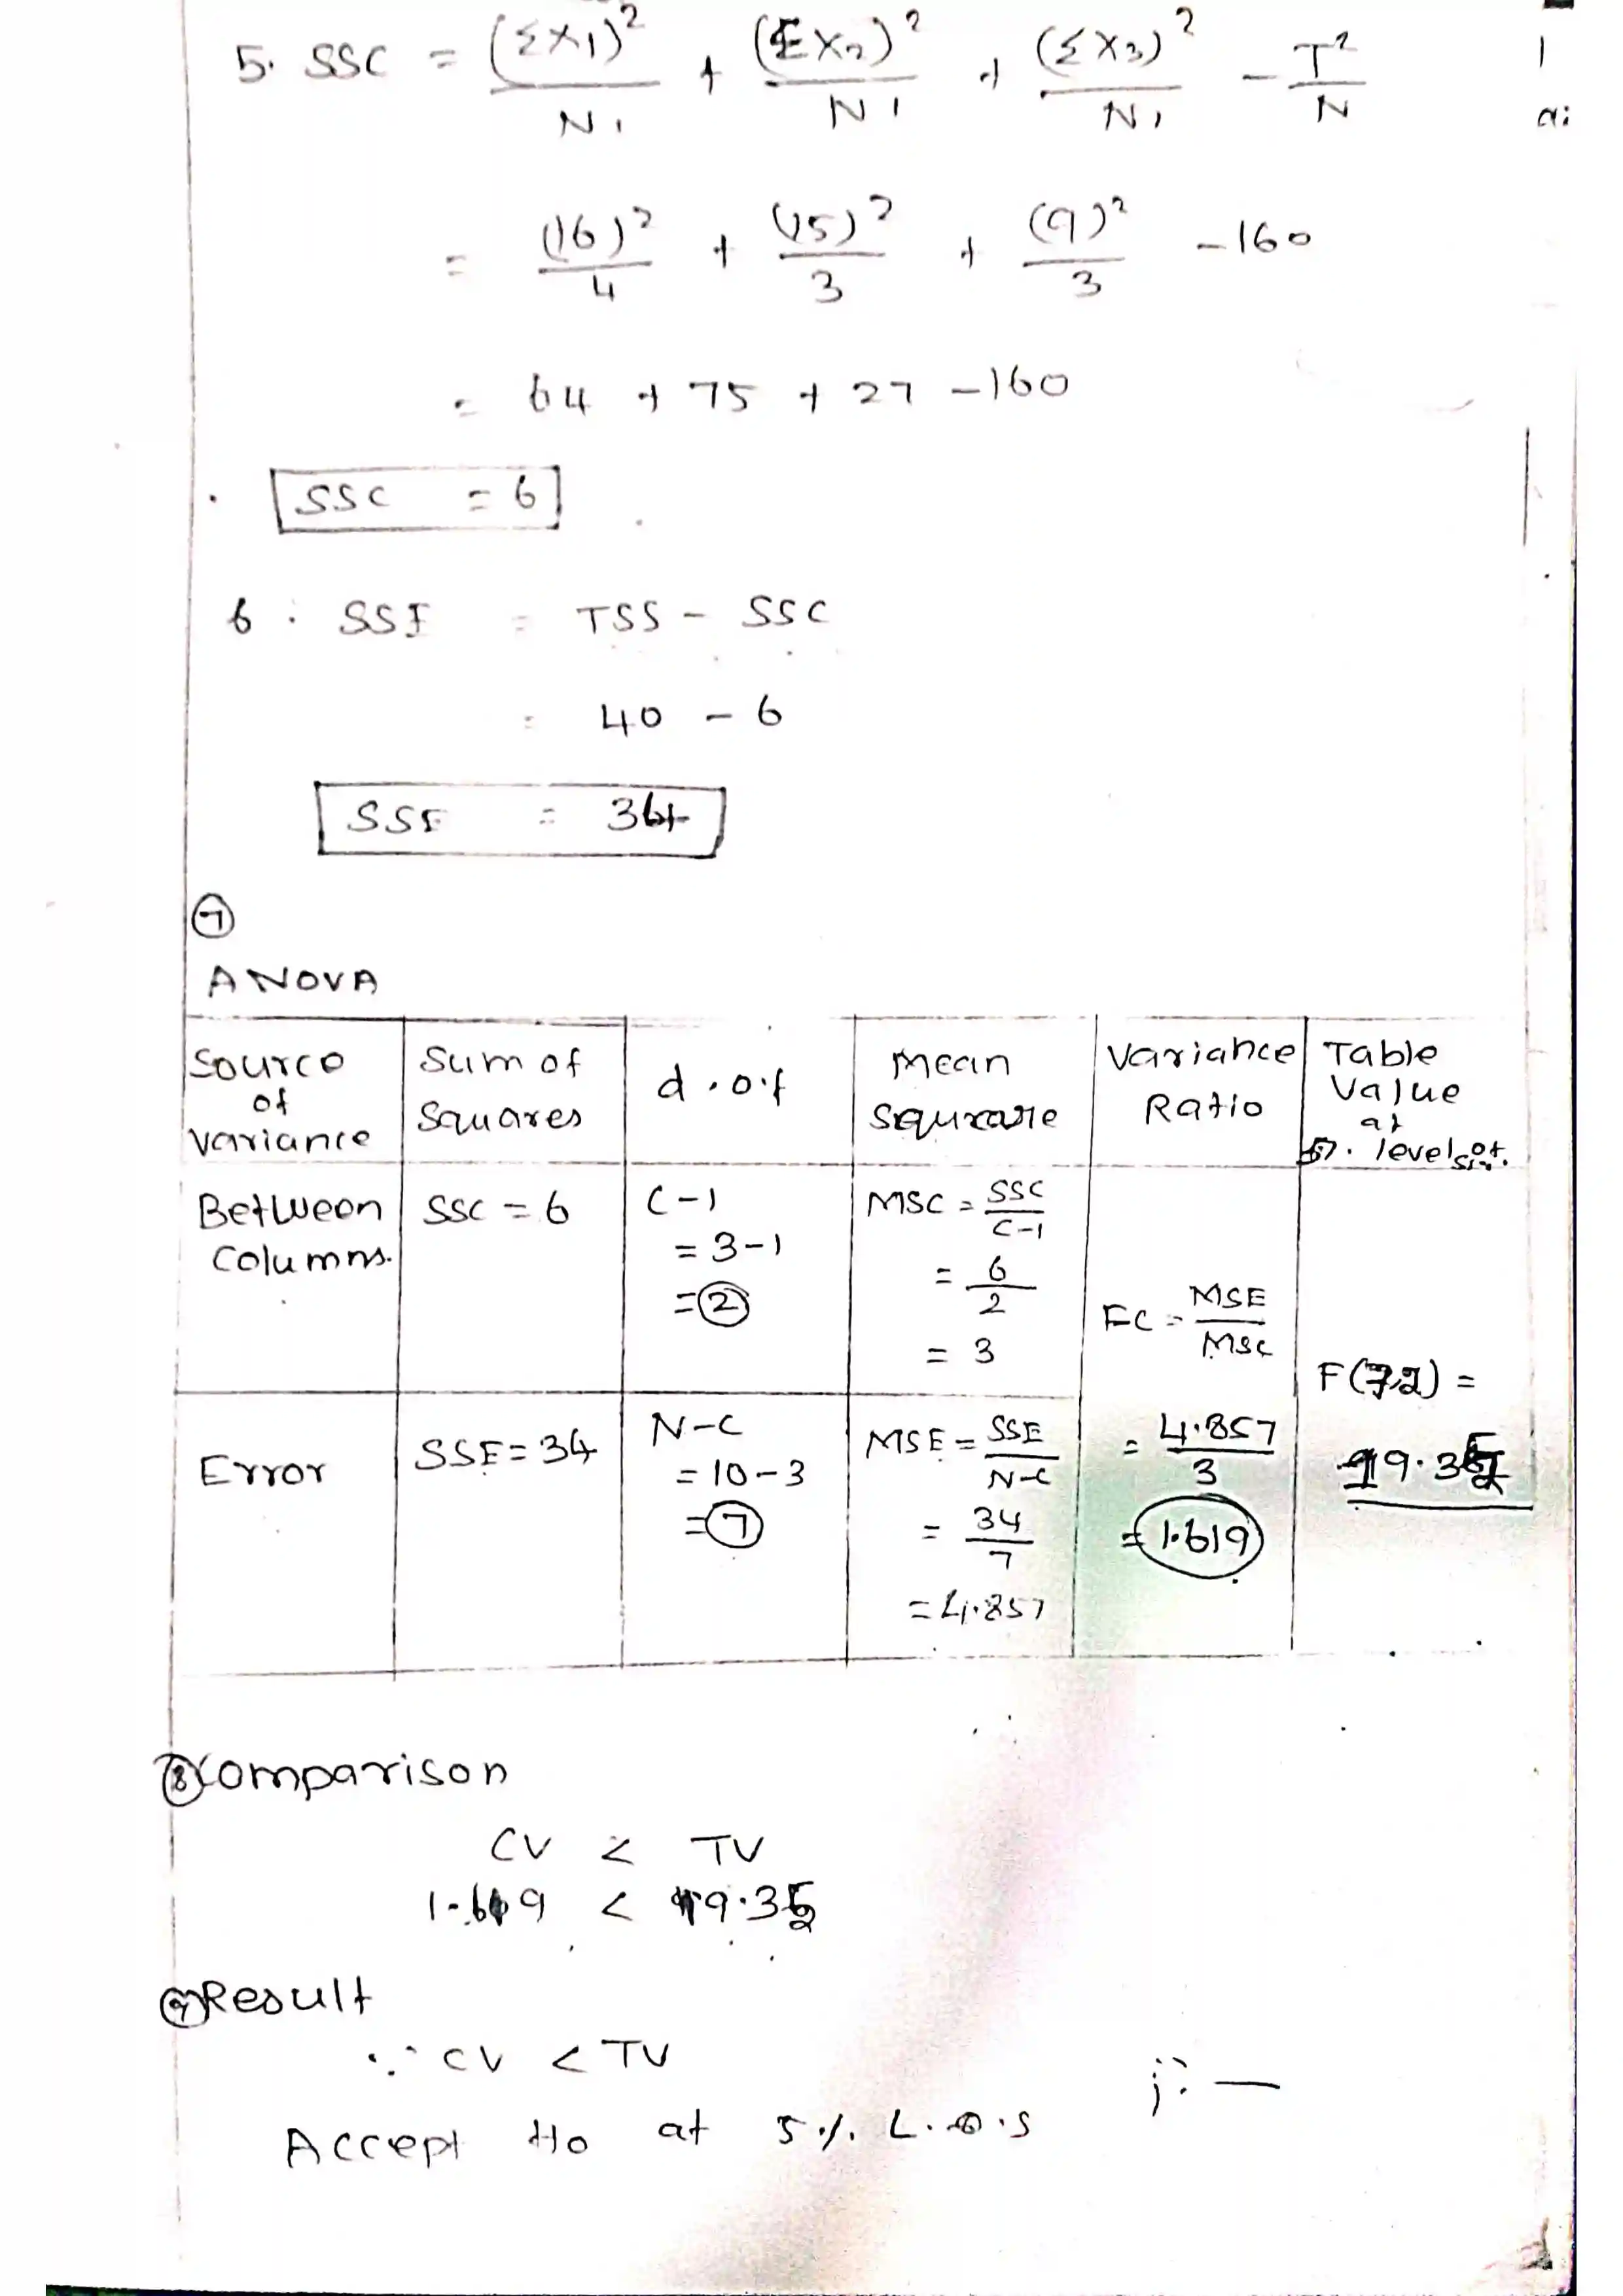 5. SSC = (ΣX1)²/N1 + (ΣX2)²/N1 + (ΣX3)²/N1 - T²/N
= (16)²/4 + (15)²/3 + (9)²/3 - 160
= 64 + 75 + 27 - 160
SSC = 6
6. SSE = TSS - SSC
= 40 - 6
SSE = 34
7
ANOVA
Source of variance | Sum of Squares | d.o.f | Mean Square | Variance Ratio | Table Value at 5%. level of
Between Columns. | SSC = 6 | C-1 = 3-1 = 2 | MSC = SSC/C-1 = 6/2 = 3 | FC = MSE/MSC = 4.857/3 = 1.619 | F(7,2) = 19.35
Error | SSE = 34 | N-C = 10-3 = 7 | MSE = SSE/N-C = 34/7 = 4.857
8 Comparison
CV < TV
1.619 < 19.35
9 Result
∵ CV < TV
Accept Ho at 5%. L.O.S